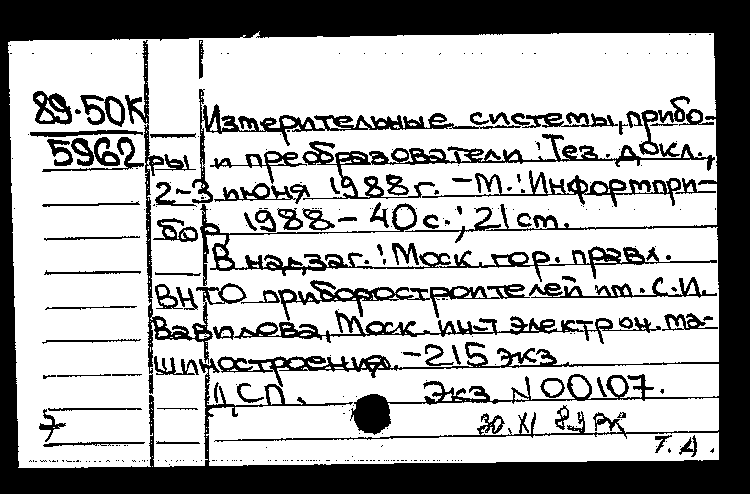 89-50К
5962
Измерительные системы, прибо-
ры и преобразователи: Тез. докл.,
2-3 июня 1988 г. - М.: Информпри-
бор, 1988. - 40 с.; 21 cm.
В надзаг.: Моск. гор. правл.
ВНТО приборостроителей им. С.И.
Вавилова, Моск. ин-т электрон. ма-
шиностроения. - 215 экз.
ДСП. Экз. N 00107.
7
30.XI 89 РК
Т. Д.